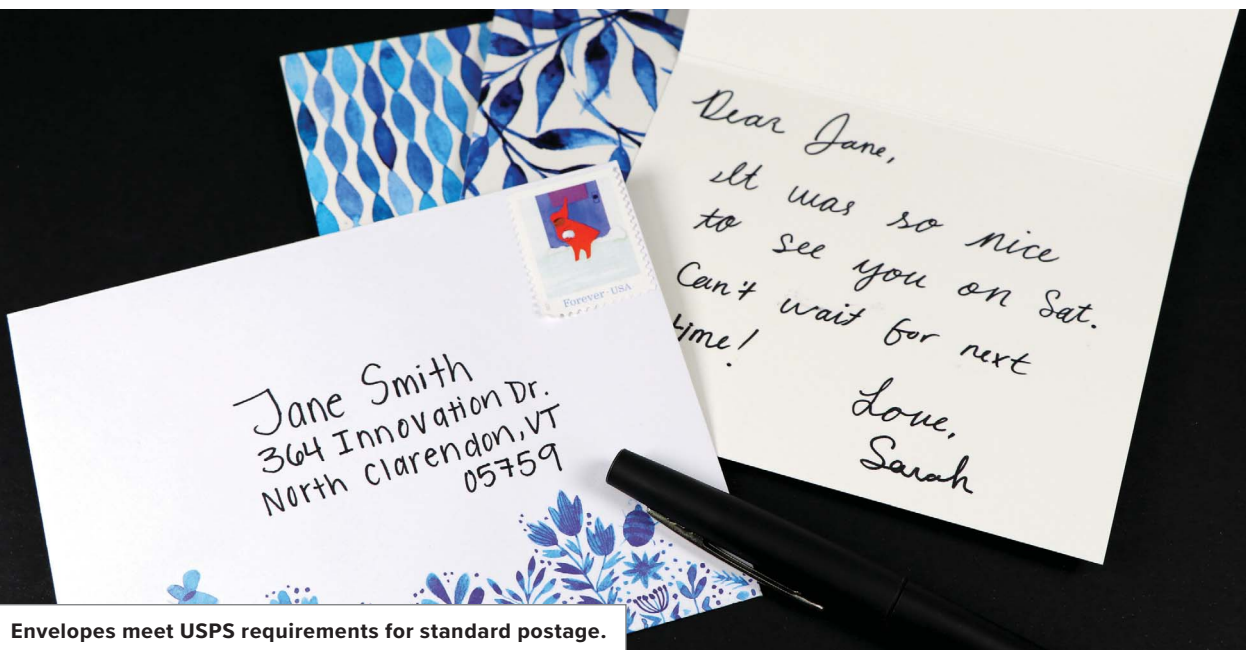 Dear Jane,
It was so nice
to see you on Sat.
Can't wait for next
time!
Love,
Sarah
Forever-USA
Jane Smith
364 Innovation Dr.
North Clarendon, VT
05759
Envelopes meet USPS requirements for standard postage.